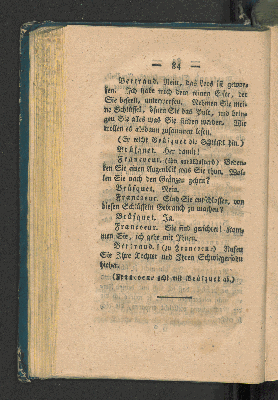 — 84 —
Bertrand. Nein, das Loos ist gewor-
fen. Ich habe mich dem reinen Eifer, der
Sie beseelt, unterworfen. Nehmen Sie mei-
ne Schlüssel, öfnen Sie das Pult, und brin-
gen Sie alles was Sie finden werden. Wir
wollen es alsdann zusammen lesen.
(Er reicht Brüsquet die Schlüssel hin.)
Brüsquet. Her damit!
Francoeur. (ihn zurückhaltend) Beden-
ken Sie einen Augenblick was Sie thun. Wol-
len Sie nach den Gränzen gehen?
Brüsquet. Nein.
Francoeur. Sind Sie entschlossen, von
diesen Schlüsseln Gebrauch zu machen?
Brüsquet. Ja.
Francoeur. Sie sind gerichtet! Kom-
men Sie, ich gehe mit Ihnen.
Bertrand. (zu Francoeur) Rufen
Sie Ihre Tochter und Ihren Schwiegersohn
hieher.
(Francoeur geht mit Brüsquet ab.)